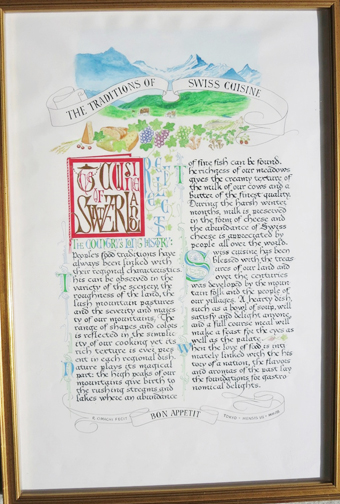 THE TRADITIONS OF SWISS CUISINE
THE CUISINE
OF
SWITZERLAND
REFLECTS
THE COUNTRY'S LONG HISTORY:
People's food traditions have
always been linked with
their regional characteristics.
This can be observed in the
variety of the scenery, the
roughness of the land, the
lush mountain pastures
and the severity and majes
ty of our mountains. The
range of shapes and colors
is reflected in the simplic
ity of our cooking yet its
rich texture is ever pres
ent in each regional dish.
Nature plays its magical
part: the high peaks of our
mountains give birth to
the rushing streams and
lakes where an abundance
of fine fish can be found.
The richness of our meadows
gives the creamy texture of
the milk of our cows and a
butter of the finest quality.
During the harsh winter
months, milk is preserved
in the form of cheese and
the abundance of Swiss
cheese is appreciated by
people all over the world.
Swiss cuisine has been
blessed with the treas
ures of our land and
over the centuries
was developed by the moun
tain folk and the people of
our villages. A hearty dish,
such as a bowl of soup, will
satisfy and delight anyone,
and a full course meal will
make a feast for the eyes as
well as the palate.
When the love of food is inti
mately linked with the his
tory of a nation, the flavors
and aromas of the past lay
the foundations for gastro
nomical delights.
BON APPETIT